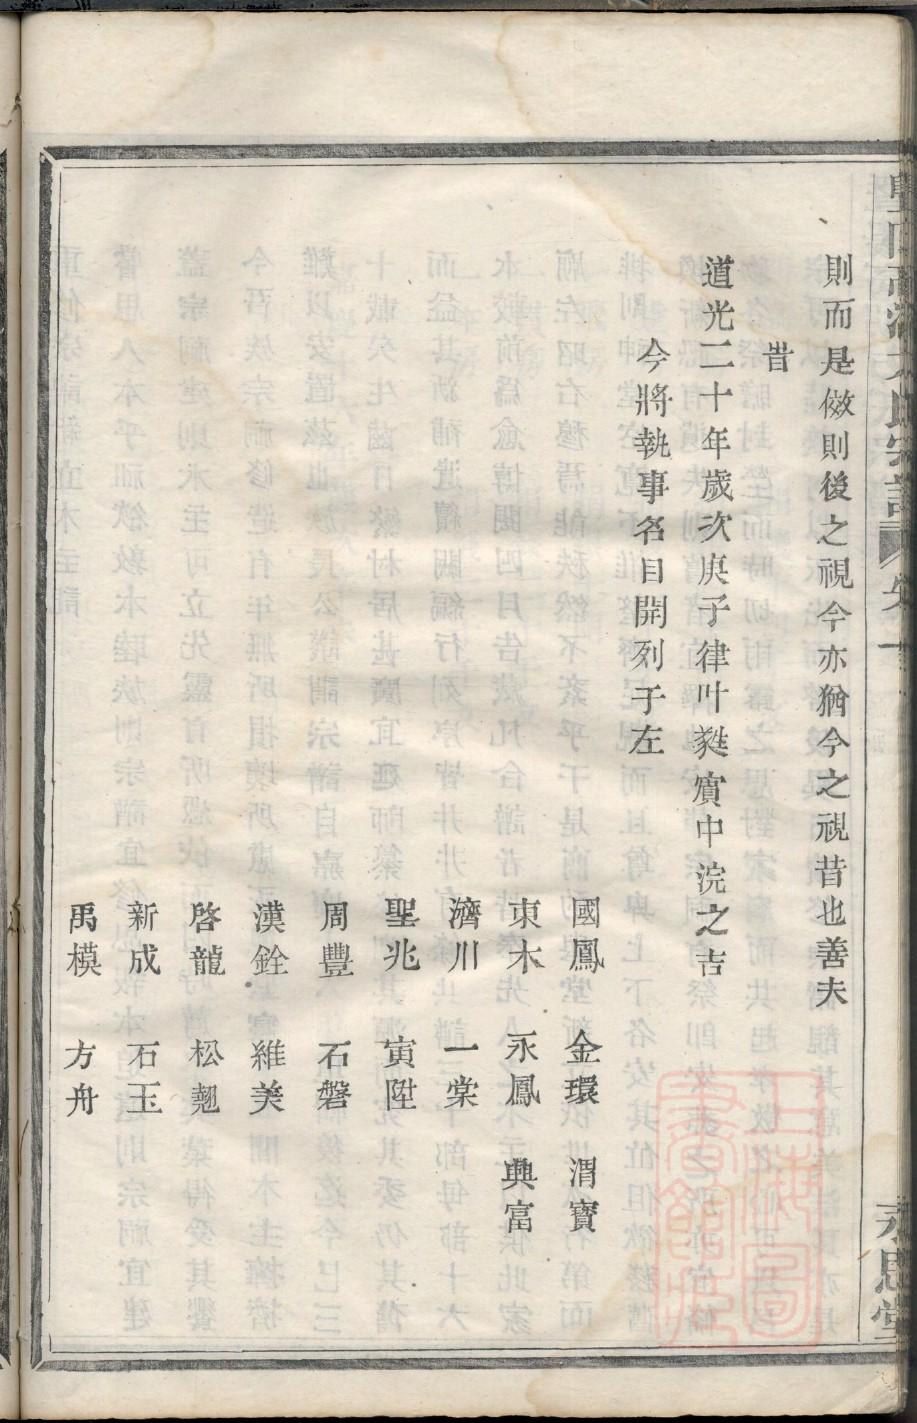 則而是倣則後之視今亦猶今之視昔也善夫
旹
道光二十年歲次庚子律叶蕤賔中浣之吉
今將執事名目開列于左
國鳳 金環 渭寶
東木 永鳳 典富
濟川 一棠
聖兆 寅陞
周豐 石磐
漢銓 維美
啓龍 松翹
新成 石玉
禹模 方舟